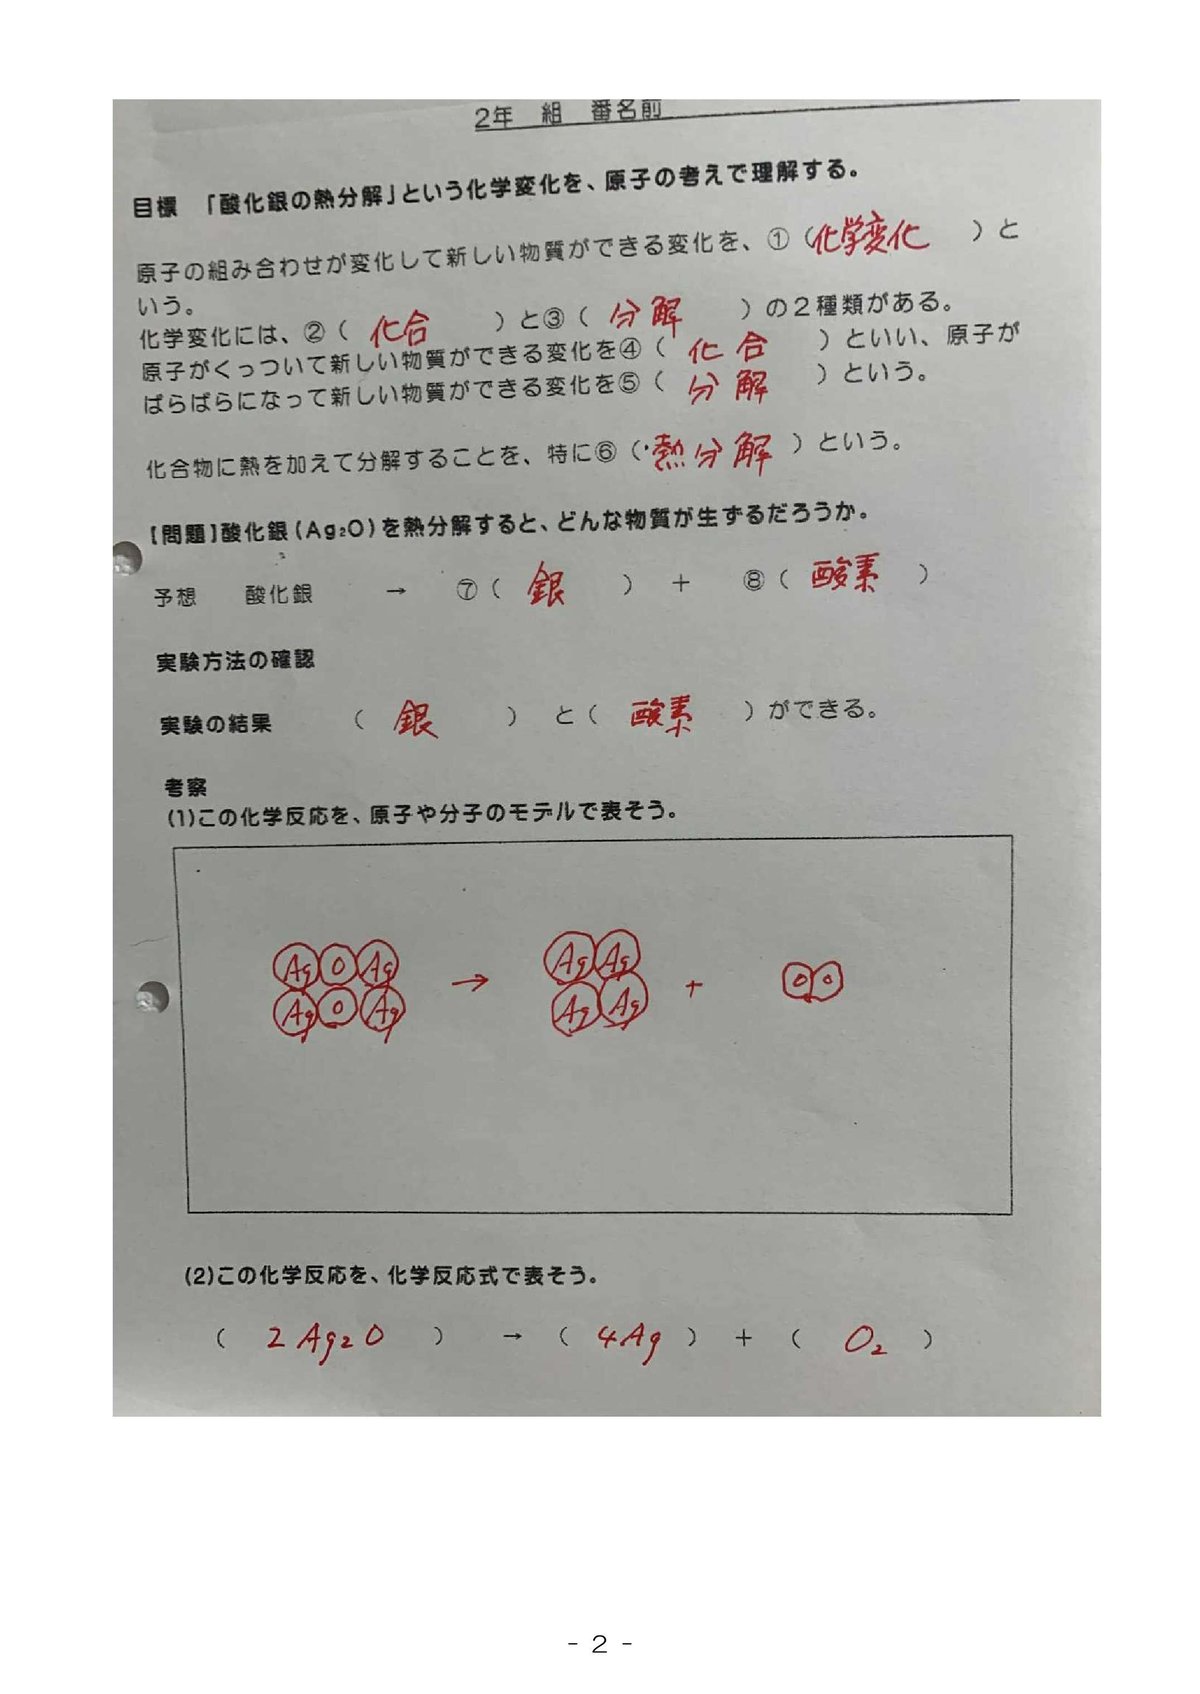 2年　組　番名前
目標　「酸化銀の熱分解」という化学変化を、原子の考えで理解する。
原子の組み合わせが変化して新しい物質ができる変化を、①（化学変化）と
いう。
化学変化には、②（化合）と③（分解）の２種類がある。
原子がくっついて新しい物質ができる変化を④（化合）といい、原子が
ばらばらになって新しい物質ができる変化を⑤（分解）という。
化合物に熱を加えて分解することを、特に⑥（熱分解）という。
【問題】酸化銀（Ag₂O）を熱分解すると、どんな物質が生ずるだろうか。
予想　酸化銀　→　⑦（銀）　＋　⑧（酸素）
実験方法の確認
実験の結果　（銀）と（酸素）ができる。
考察
(1)この化学反応を、原子や分子のモデルで表そう。
Ag O Ag → Ag Ag + O O
Ag O Ag Ag Ag
(2)この化学反応を、化学反応式で表そう。
（2Ag₂O）　→　（4Ag）＋（O₂）
- 2 -